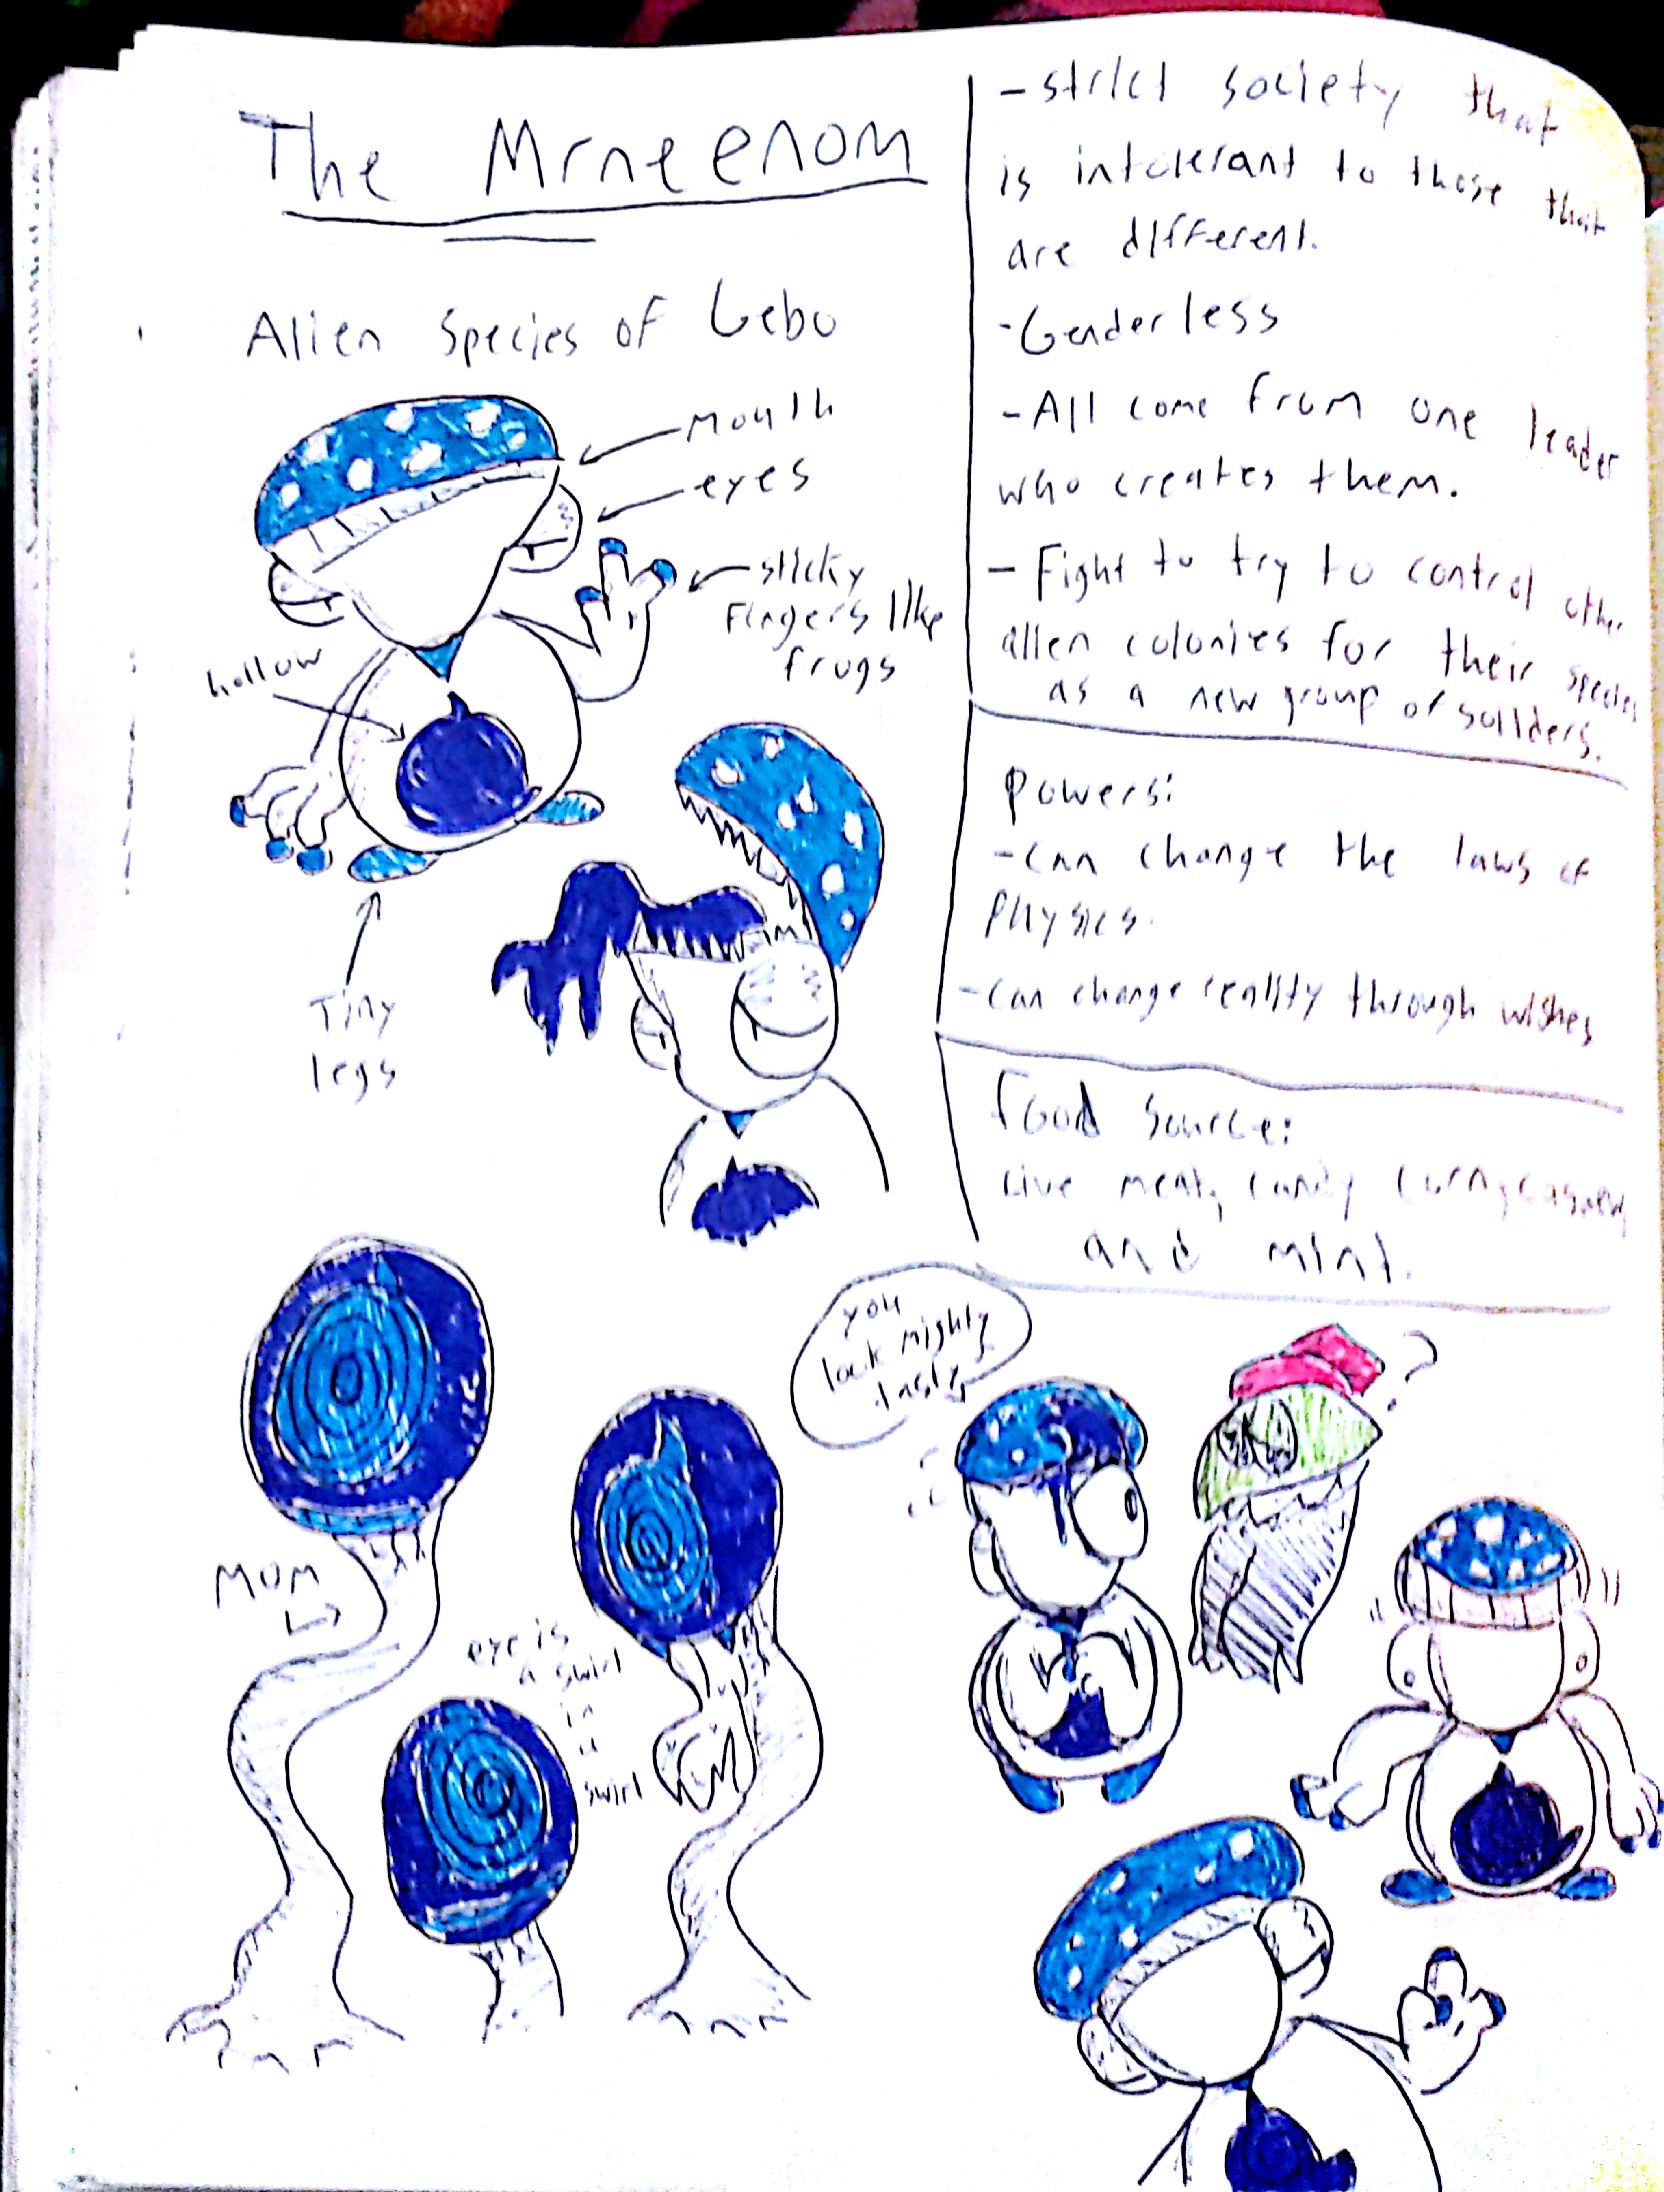 The Mrneenom
Alien species of Gebo
mouth
eyes
sticky
fingers like
frogs
hollow
Tiny
legs
- strict society that
is intolerant to those that
are different.
- Genderless
- All come from one leader
who creates them.
- Fight to try to control other
alien colonies for their species
as a new group of
Powers:
- can change the laws of
physics.
- can change reality through wishes
Food source:
Live meat, candy corn,
and mint.
you
look mighty
tasty
?
Mom
eye is
a swirl
in
a
swirl